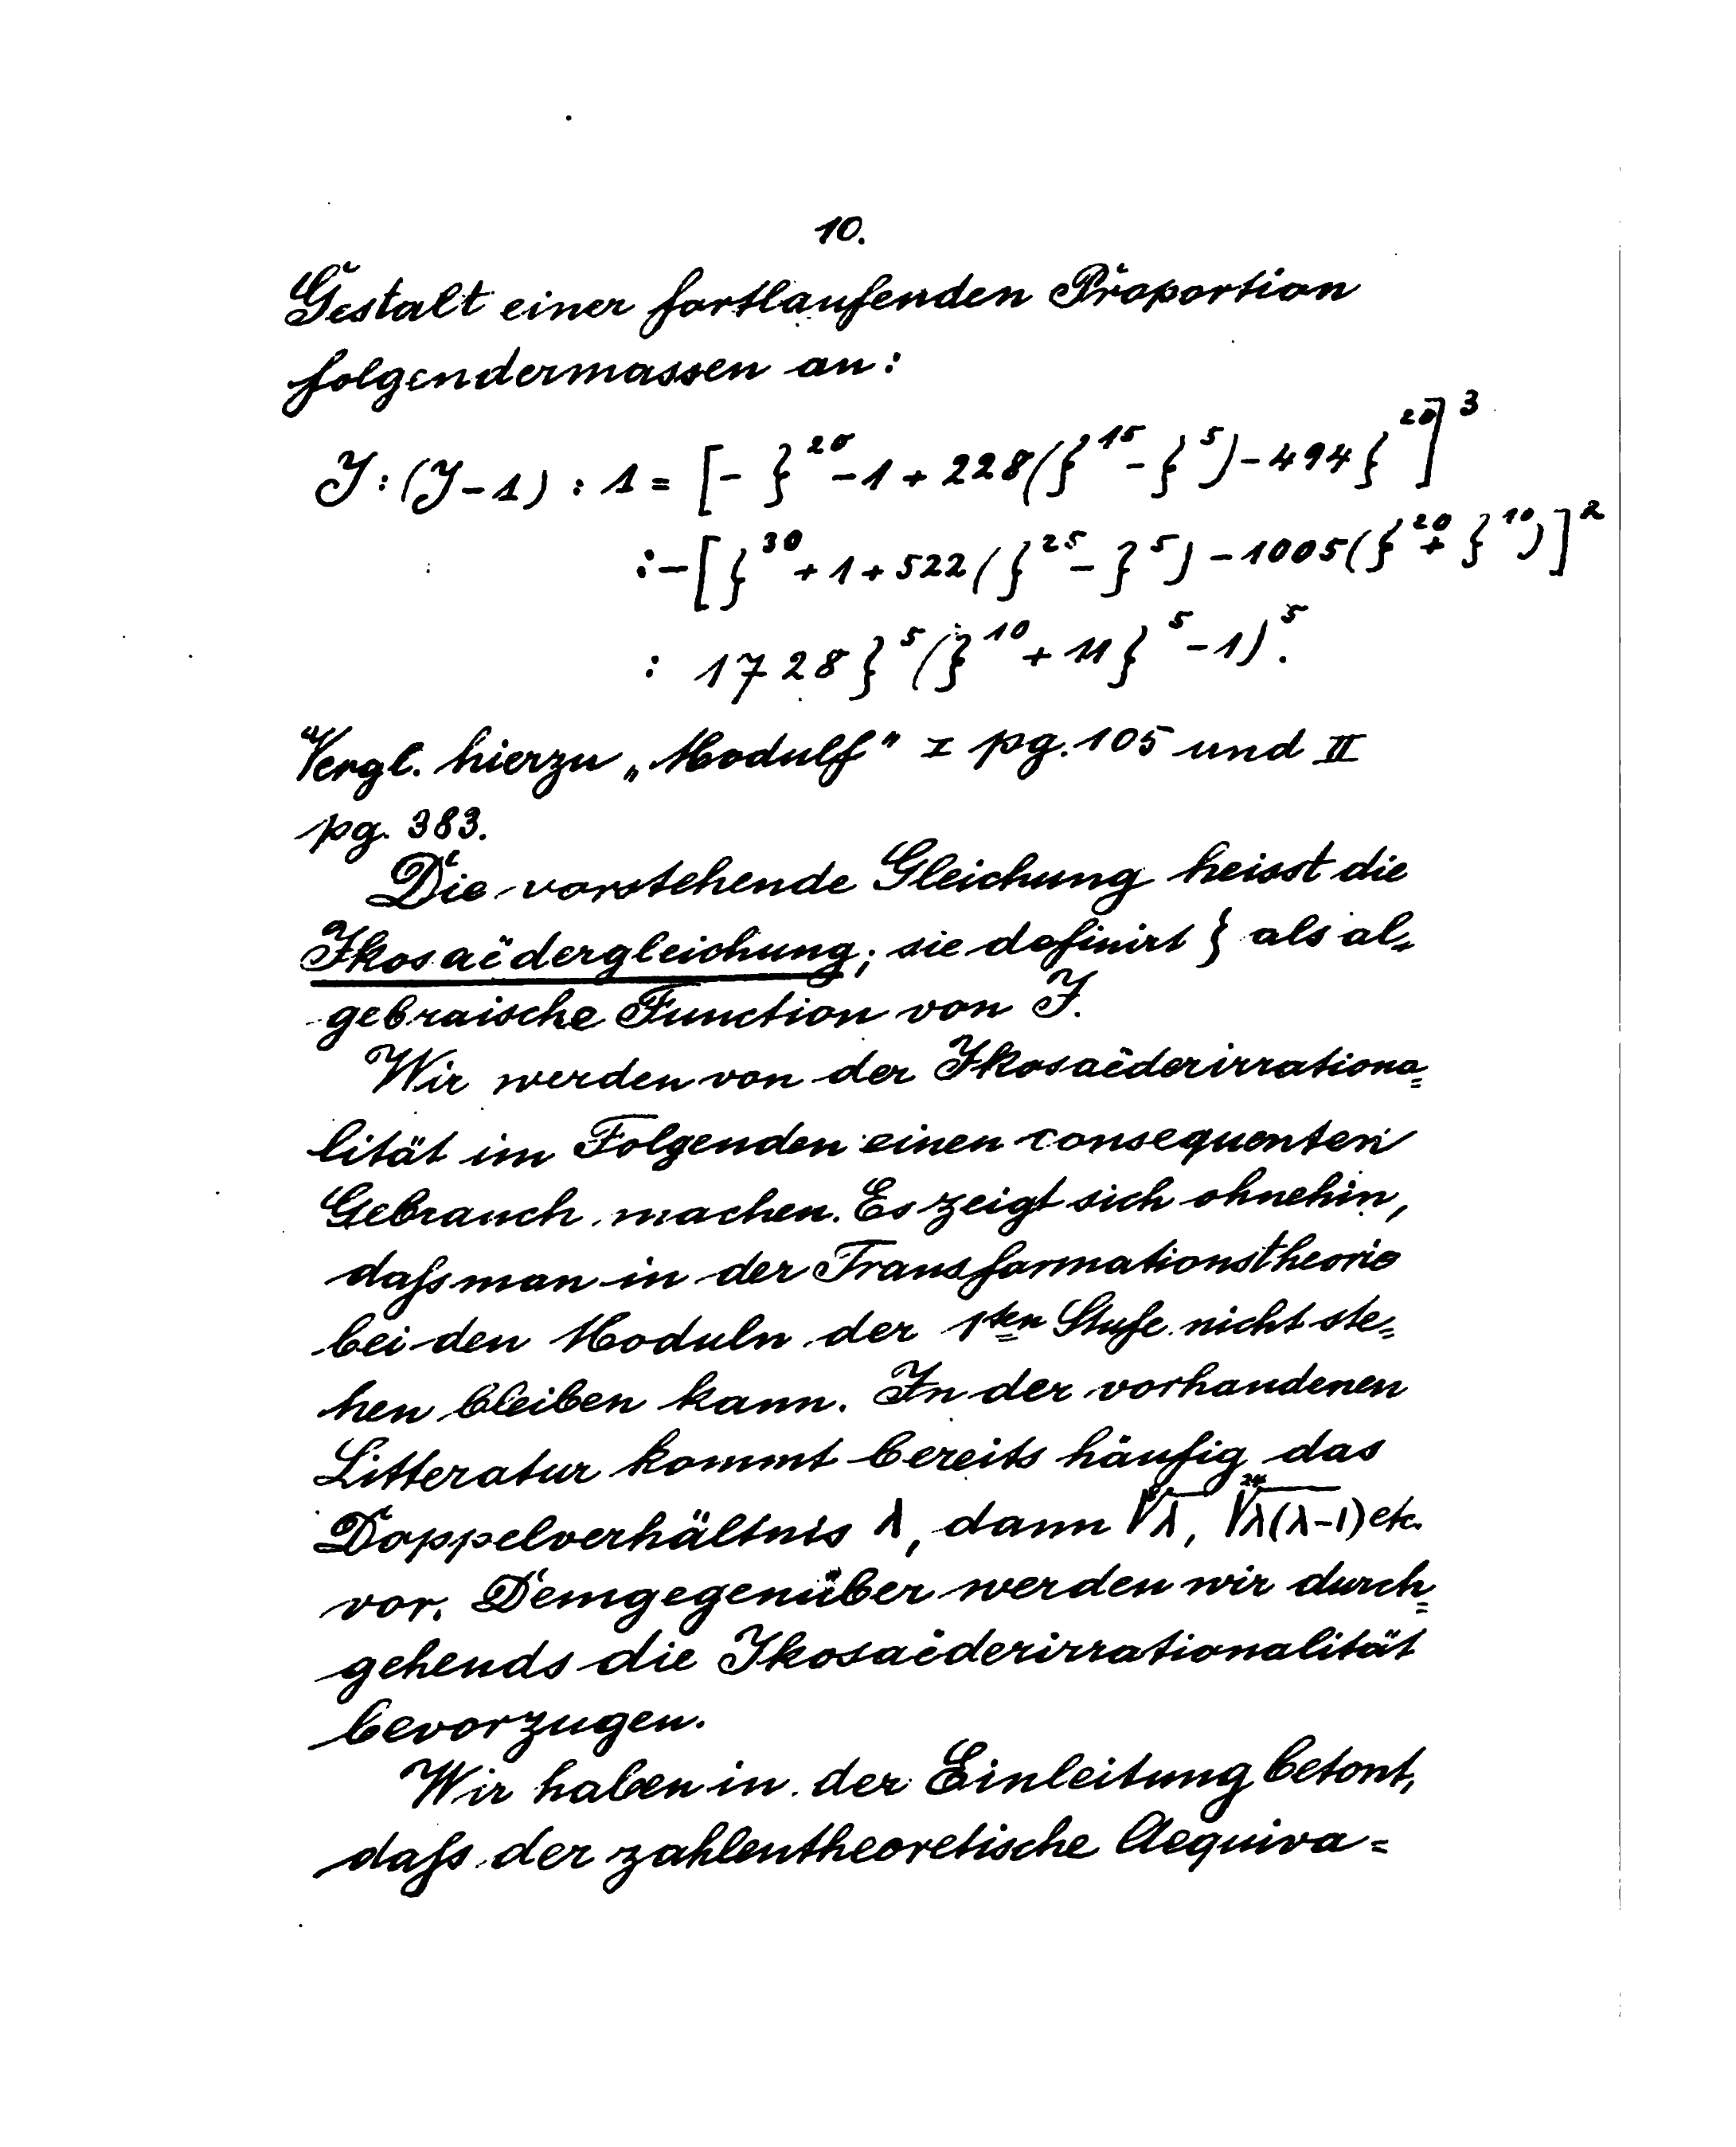 10.
Gestalt einer fortlaufenden Proportion
folgendermassen an:
J : (J-1) : 1 = [- ζ^20 - 1 + 228(ζ^15 - ζ^5) - 494 ζ^20]^3
: - [ζ^30 + 1 + 522 (ζ^25 - ζ^5) - 1005(ζ^20 + ζ^10)]^2
: 1728 ζ^5 (ζ^10 + 11 ζ^5 - 1)^5.
Vergl. hierzu „Modulf" I pg. 105 und II
pg. 383.
Die vorstehende Gleichung heisst die
Ikosaëdergleichung; sie definirt ζ als al=
gebraische Function von J.
Wir werden von der Ikosaëderirrationa=
lität im Folgenden einen consequenten
Gebrauch machen. Es zeigt sich ohnehin,
dafs man in der Transformationstheorie
bei den Moduln der 1ten Stufe nicht ste=
hen bleiben kann. In der vorhandenen
Litteratur kommt bereits häufig das
Doppelverhältnis λ, dann √λ, ²⁴√λ(λ-1) etc.
vor. Demgegenüber werden wir durch=
gehends die Ikosaëderirrationalität
bevorzugen.
Wir haben in der Einleitung betont,
dafs der zahlentheoretische Aequiva=